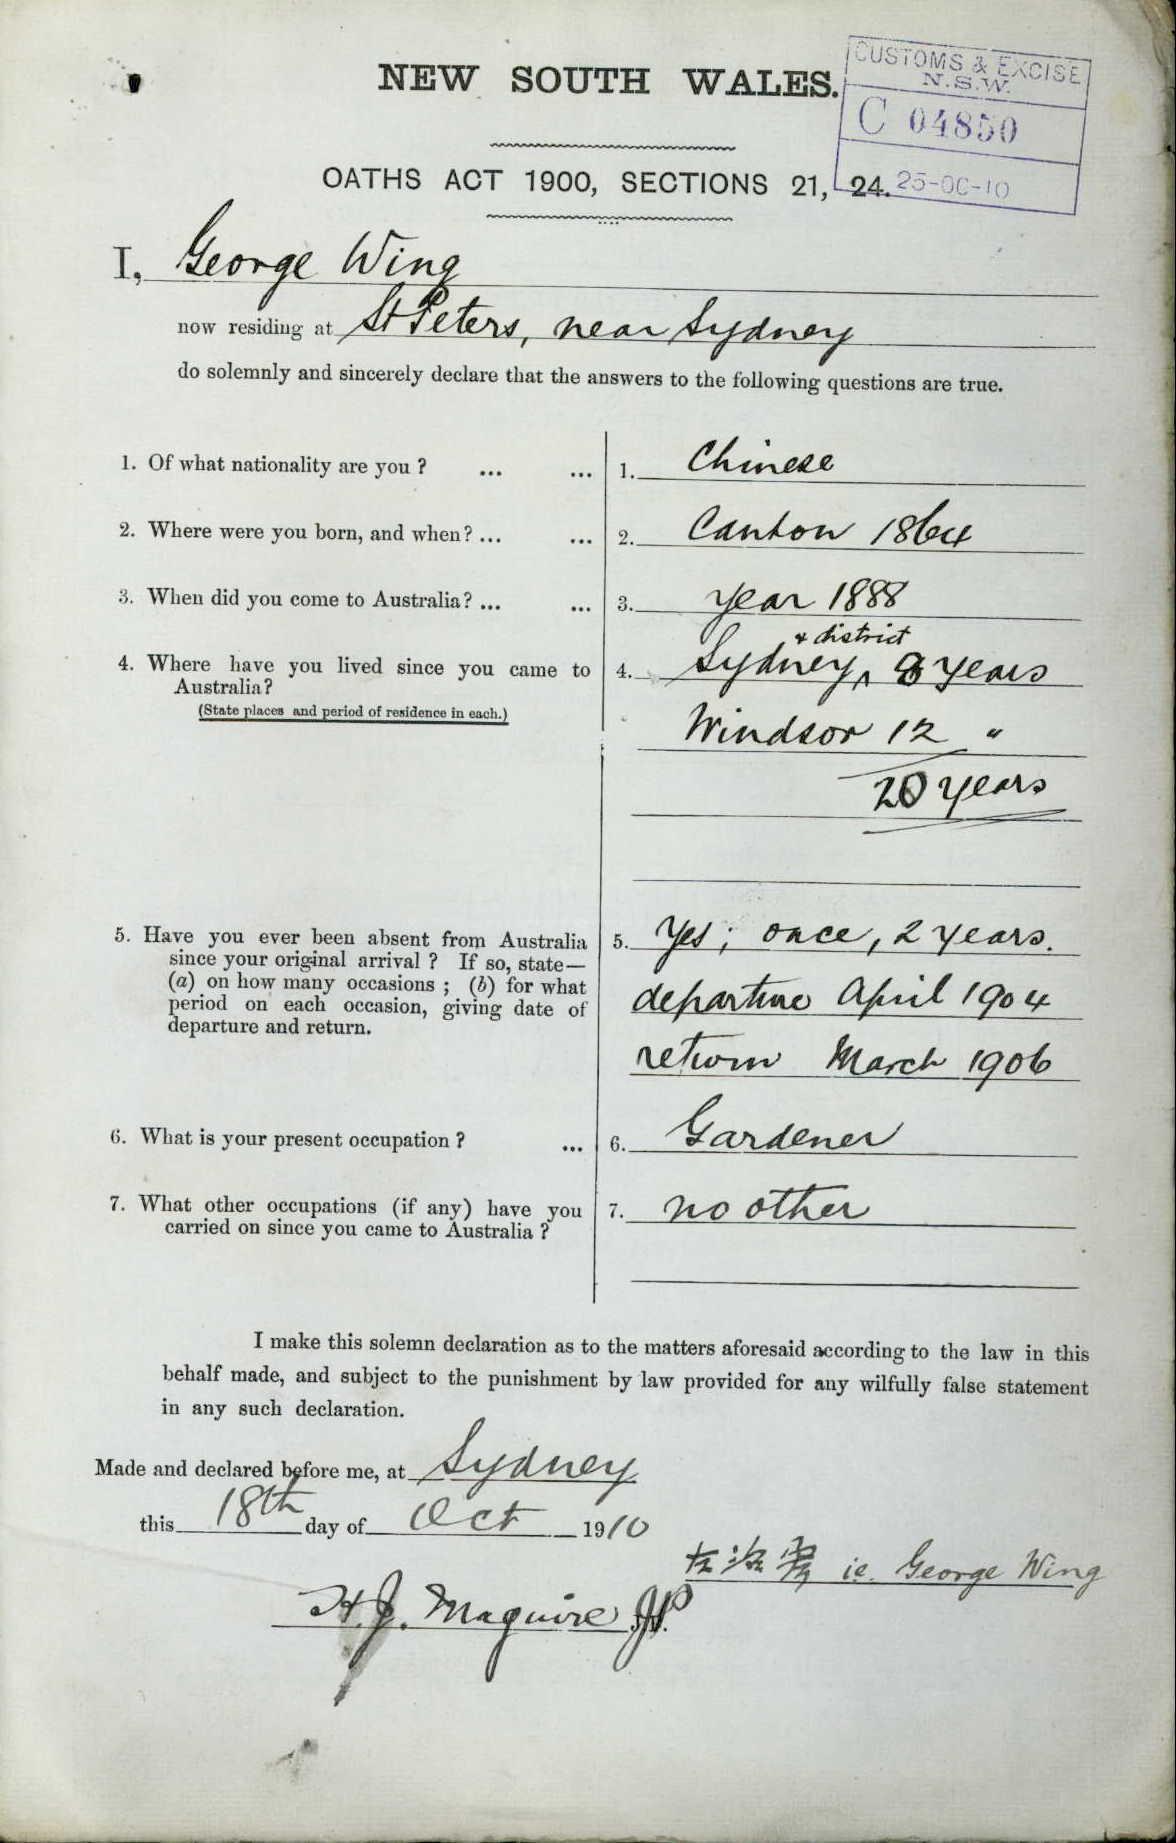 NEW SOUTH WALES.
CUSTOMS & EXCISE
N.S.W.
C 04850
25-OC-10
OATHS ACT 1900, SECTIONS 21, 24.
I, George Wing
now residing at St Peters, near Sydney
do solemnly and sincerely declare that the answers to the following questions are true.
1. Of what nationality are you ? ... ... 1. Chinese
2. Where were you born, and when? ... ... 2. Canton 1864
3. When did you come to Australia? ... ... 3. year 1888
& district
4. Where have you lived since you came to 4. Sydney, ^ 8 years
Australia?
(State places and period of residence in each.)
Windsor 12 "
20 years
5. Have you ever been absent from Australia 5. Yes; once, 2 years.
since your original arrival ? If so, state—
(a) on how many occasions ; (b) for what departure April 1904
period on each occasion, giving date of
departure and return.
return March 1906
6. What is your present occupation ? ... 6. Gardener
7. What other occupations (if any) have you 7. no other
carried on since you came to Australia ?
I make this solemn declaration as to the matters aforesaid according to the law in this
behalf made, and subject to the punishment by law provided for any wilfully false statement
in any such declaration.
Made and declared before me, at Sydney
this 18th day of Oct 1910
i.e. George Wing
H. J. Maguire J.P.